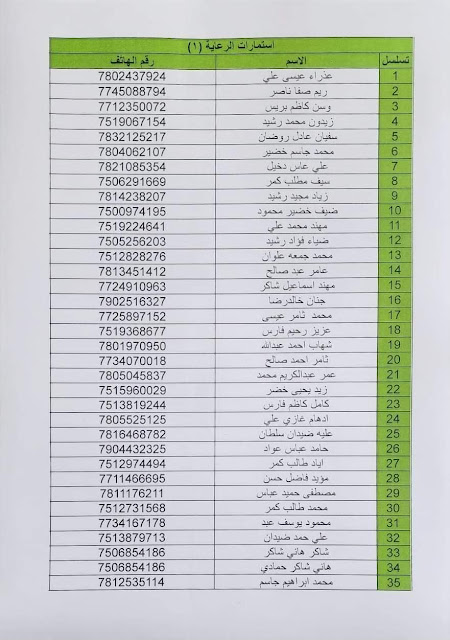 استمارات الرعاية (١)
تسلسل الاسم رقم الهاتف
1 عذراء عيسى علي 7802437924
2 ريم صفا ناصر 7745088794
3 وسن كاظم بريس 7712350072
4 زيدون محمد رشيد 7519067154
5 سفيان عادل روضان 7832125217
6 محمد جاسم خضير 7804062107
7 علي عاس دخيل 7821085354
8 سيف مطلب كمر 7506291669
9 زياد مجيد رشيد 7814238207
10 ضيف خضير محمود 7500974195
11 مهند محمد علي 7519224641
12 ضياء فؤاد رشيد 7505256203
13 محمد جمعه علوان 7512828276
14 عامر عبد صالح 7813451412
15 مهند اسماعيل شاكر 7724910963
16 جنان خالدرضا 7902516327
17 محمد ثامر عيسى 7725897152
18 عزيز رحيم فارس 7519368677
19 شهاب احمد عبدالله 7801970950
20 ثامر احمد صالح 7734070018
21 عمر عبدالكريم محمد 7805045837
22 زيد يحيى خضر 7515960029
23 كامل كاظم فارس 7513819244
24 ادهام غازي علي 7805525125
25 عليه ضيدان سلطان 7816468782
26 حامد عباس عواد 7904432325
27 اياد طالب كمر 7512974494
28 مؤيد فاضل حسن 7711466695
29 مصطفى حميد عباس 7811176211
30 محمد طالب كمر 7512731568
31 محمود يوسف عبد 7734167178
32 علي حمد ضيدان 7513879713
33 شاكر هاني شاكر 7506854186
34 هاني شاكر حمادي 7506854186
35 محمد ابراهيم جاسم 7812535114